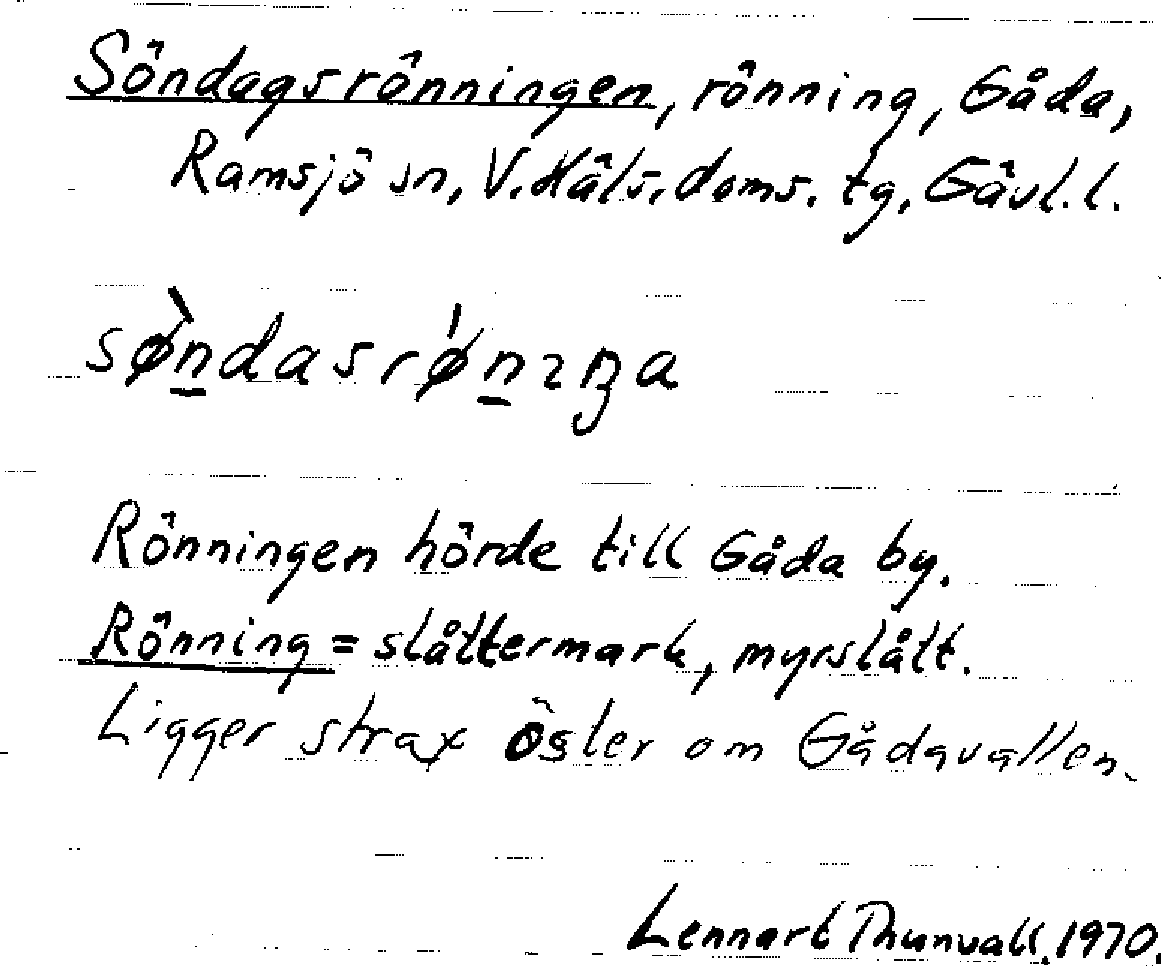 Söndagsrönningen, rönning, Gåda,
Ramsjö sn, V. Häls. doms. tg, Gävl. l.
sø̀n̲dasrǿn̲ɪŋa
Rönningen hörde till Gåda by.
Rönning = slåttermark, myrslått.
Ligger strax öster om Gådavallen.
Lennart Thunvall. 1970.